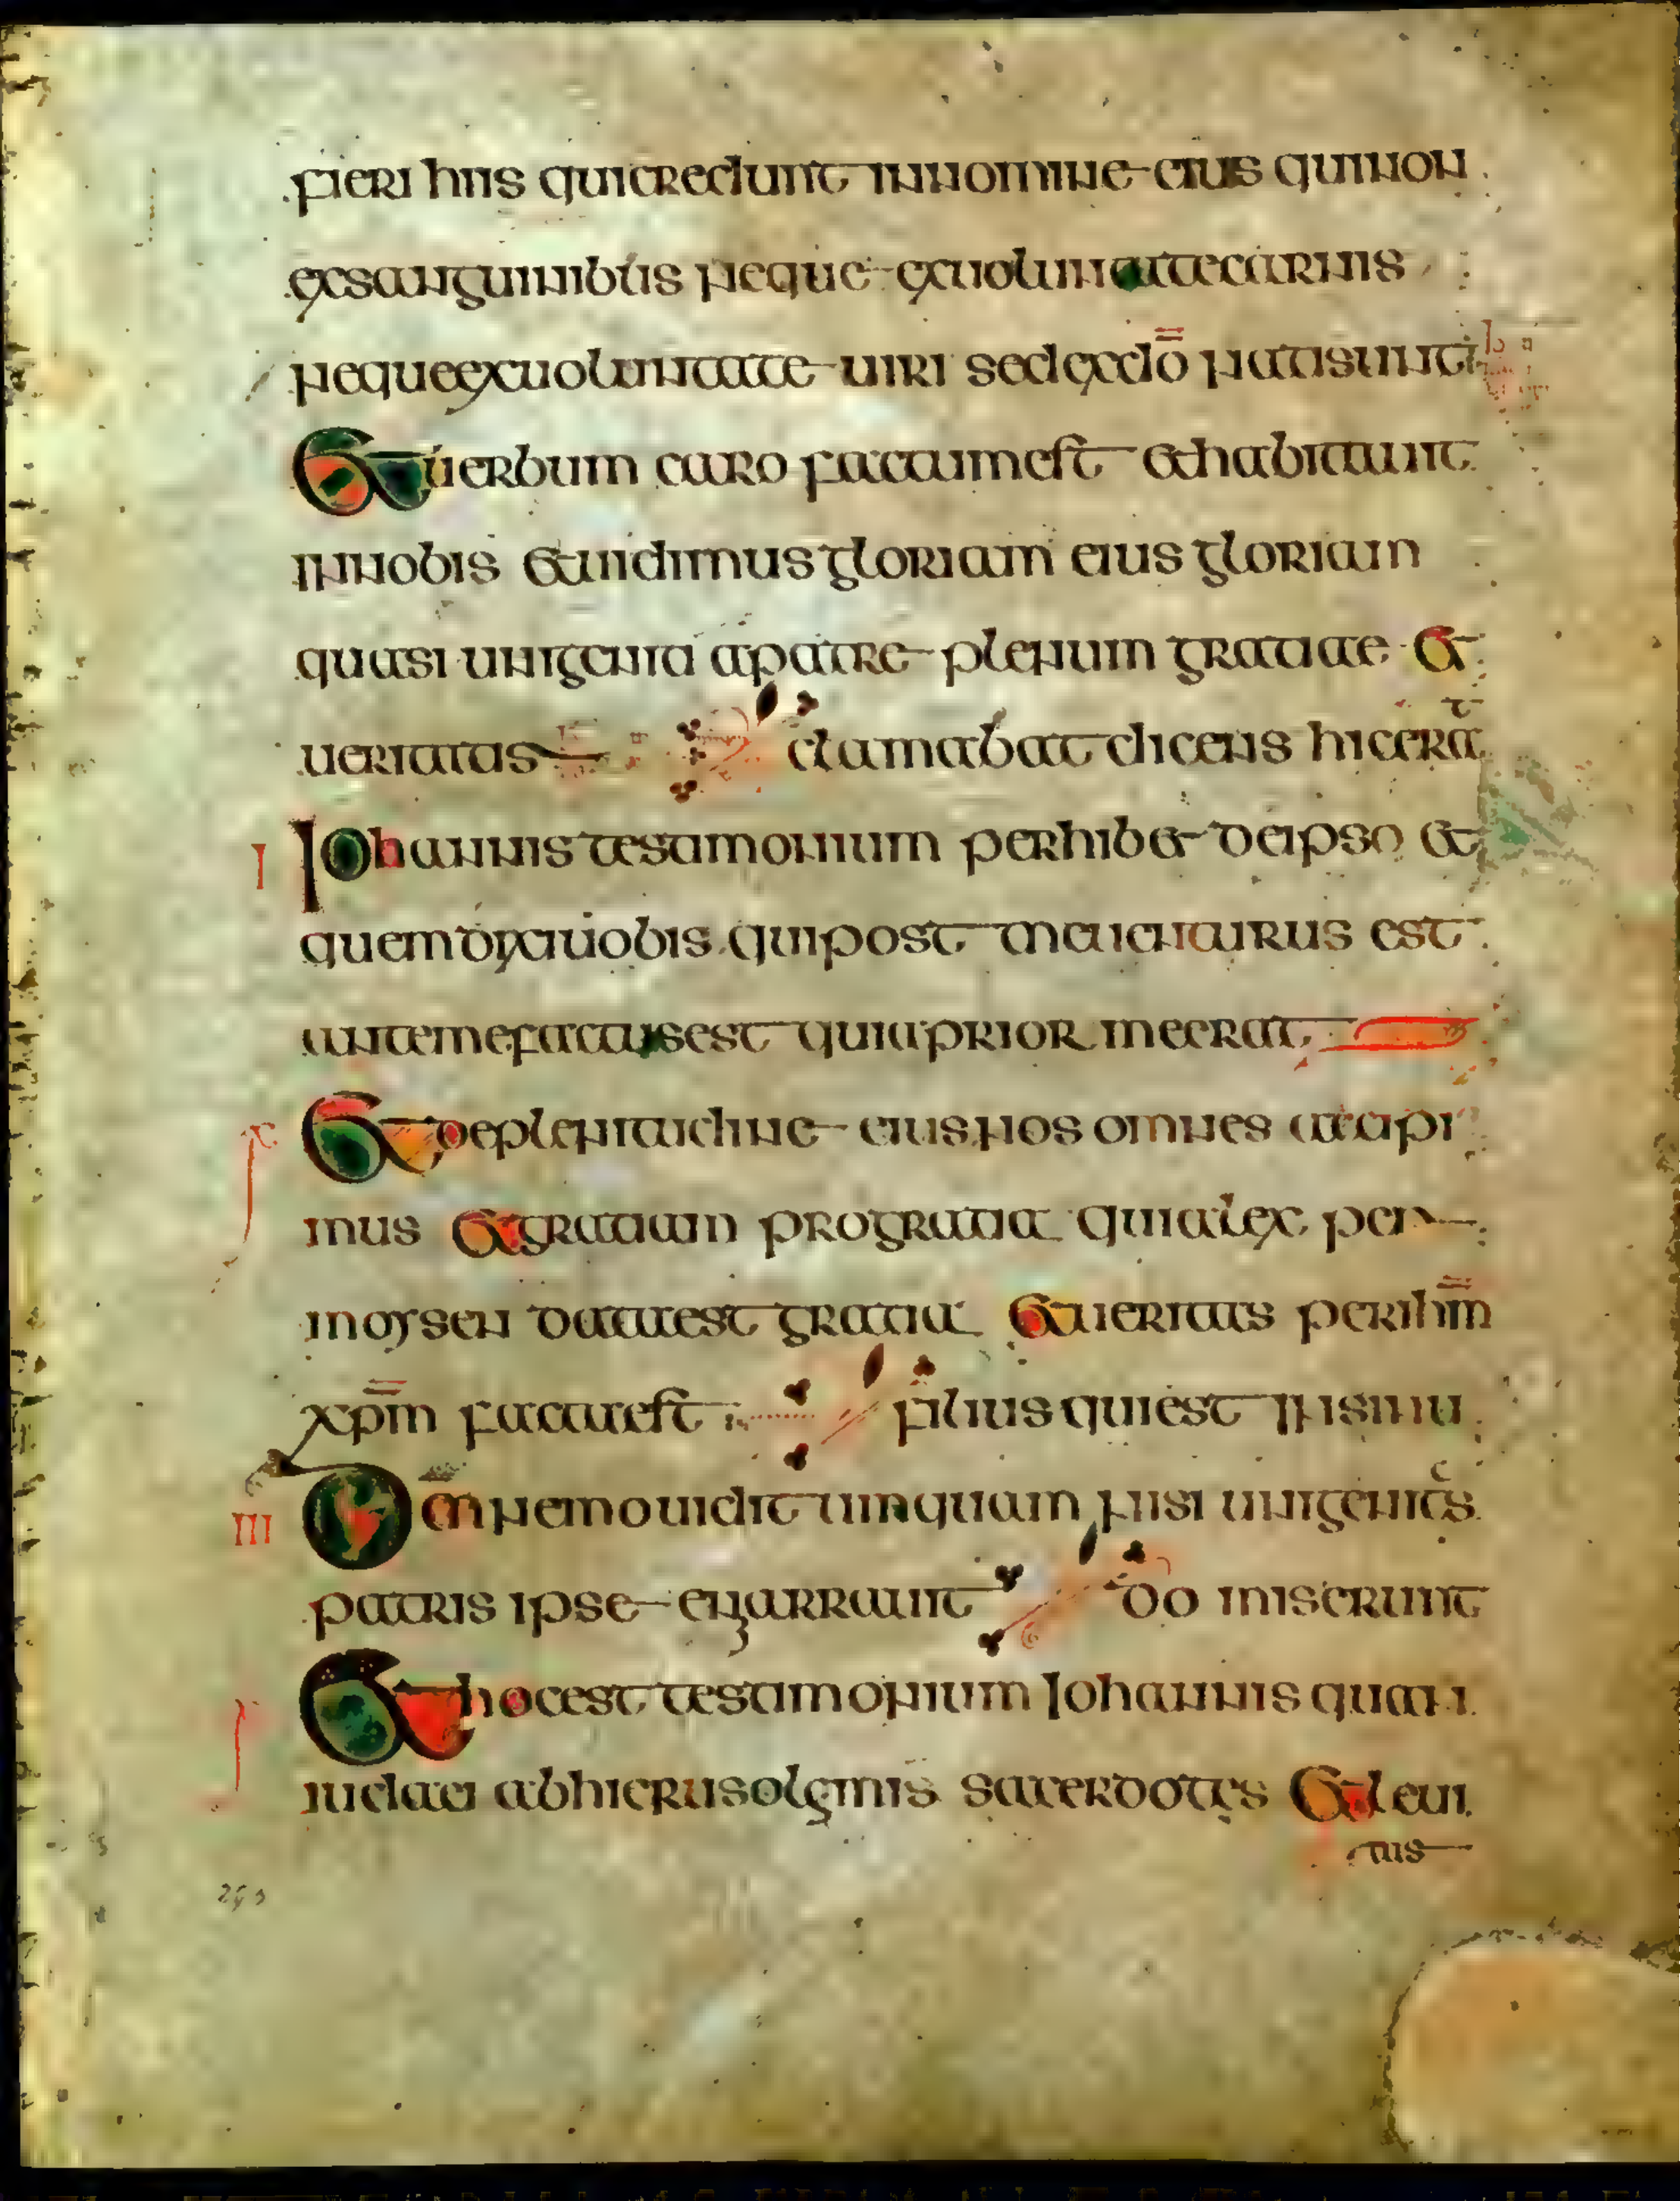 fieri hiis qui credunt in nomine eius qui non
ex sanguinibus neque ex uoluntate carnis
neque ex uoluntate uiri sed ex dō nati sunt
Et uerbum caro factum est et habitauit
in nobis et uidimus gloriam eius gloriam
quasi unigeniti a patre plenum gratiae et
ueritatis
clamabat dicens hic erat
I
Iohannis testimonium perhibet de ipso et
quem dyxi uobis qui post me uenturus est
ante me factus est quia prior me erat
Et de plenitudine eius nos omnes accipi
mus et gratiam pro gratia quia lex per
moysen data est gratia et ueritas per ihm̄
xpm̄ facta est
filius qui est in sinu
III
Dm̄ nemo uidit umquam nisi unigenitus
patris ipse enarrauit
do miserunt
Et hoc est testimonium Iohannis quan
iudaei ab hierusolymis sacerdotes et leui
tas